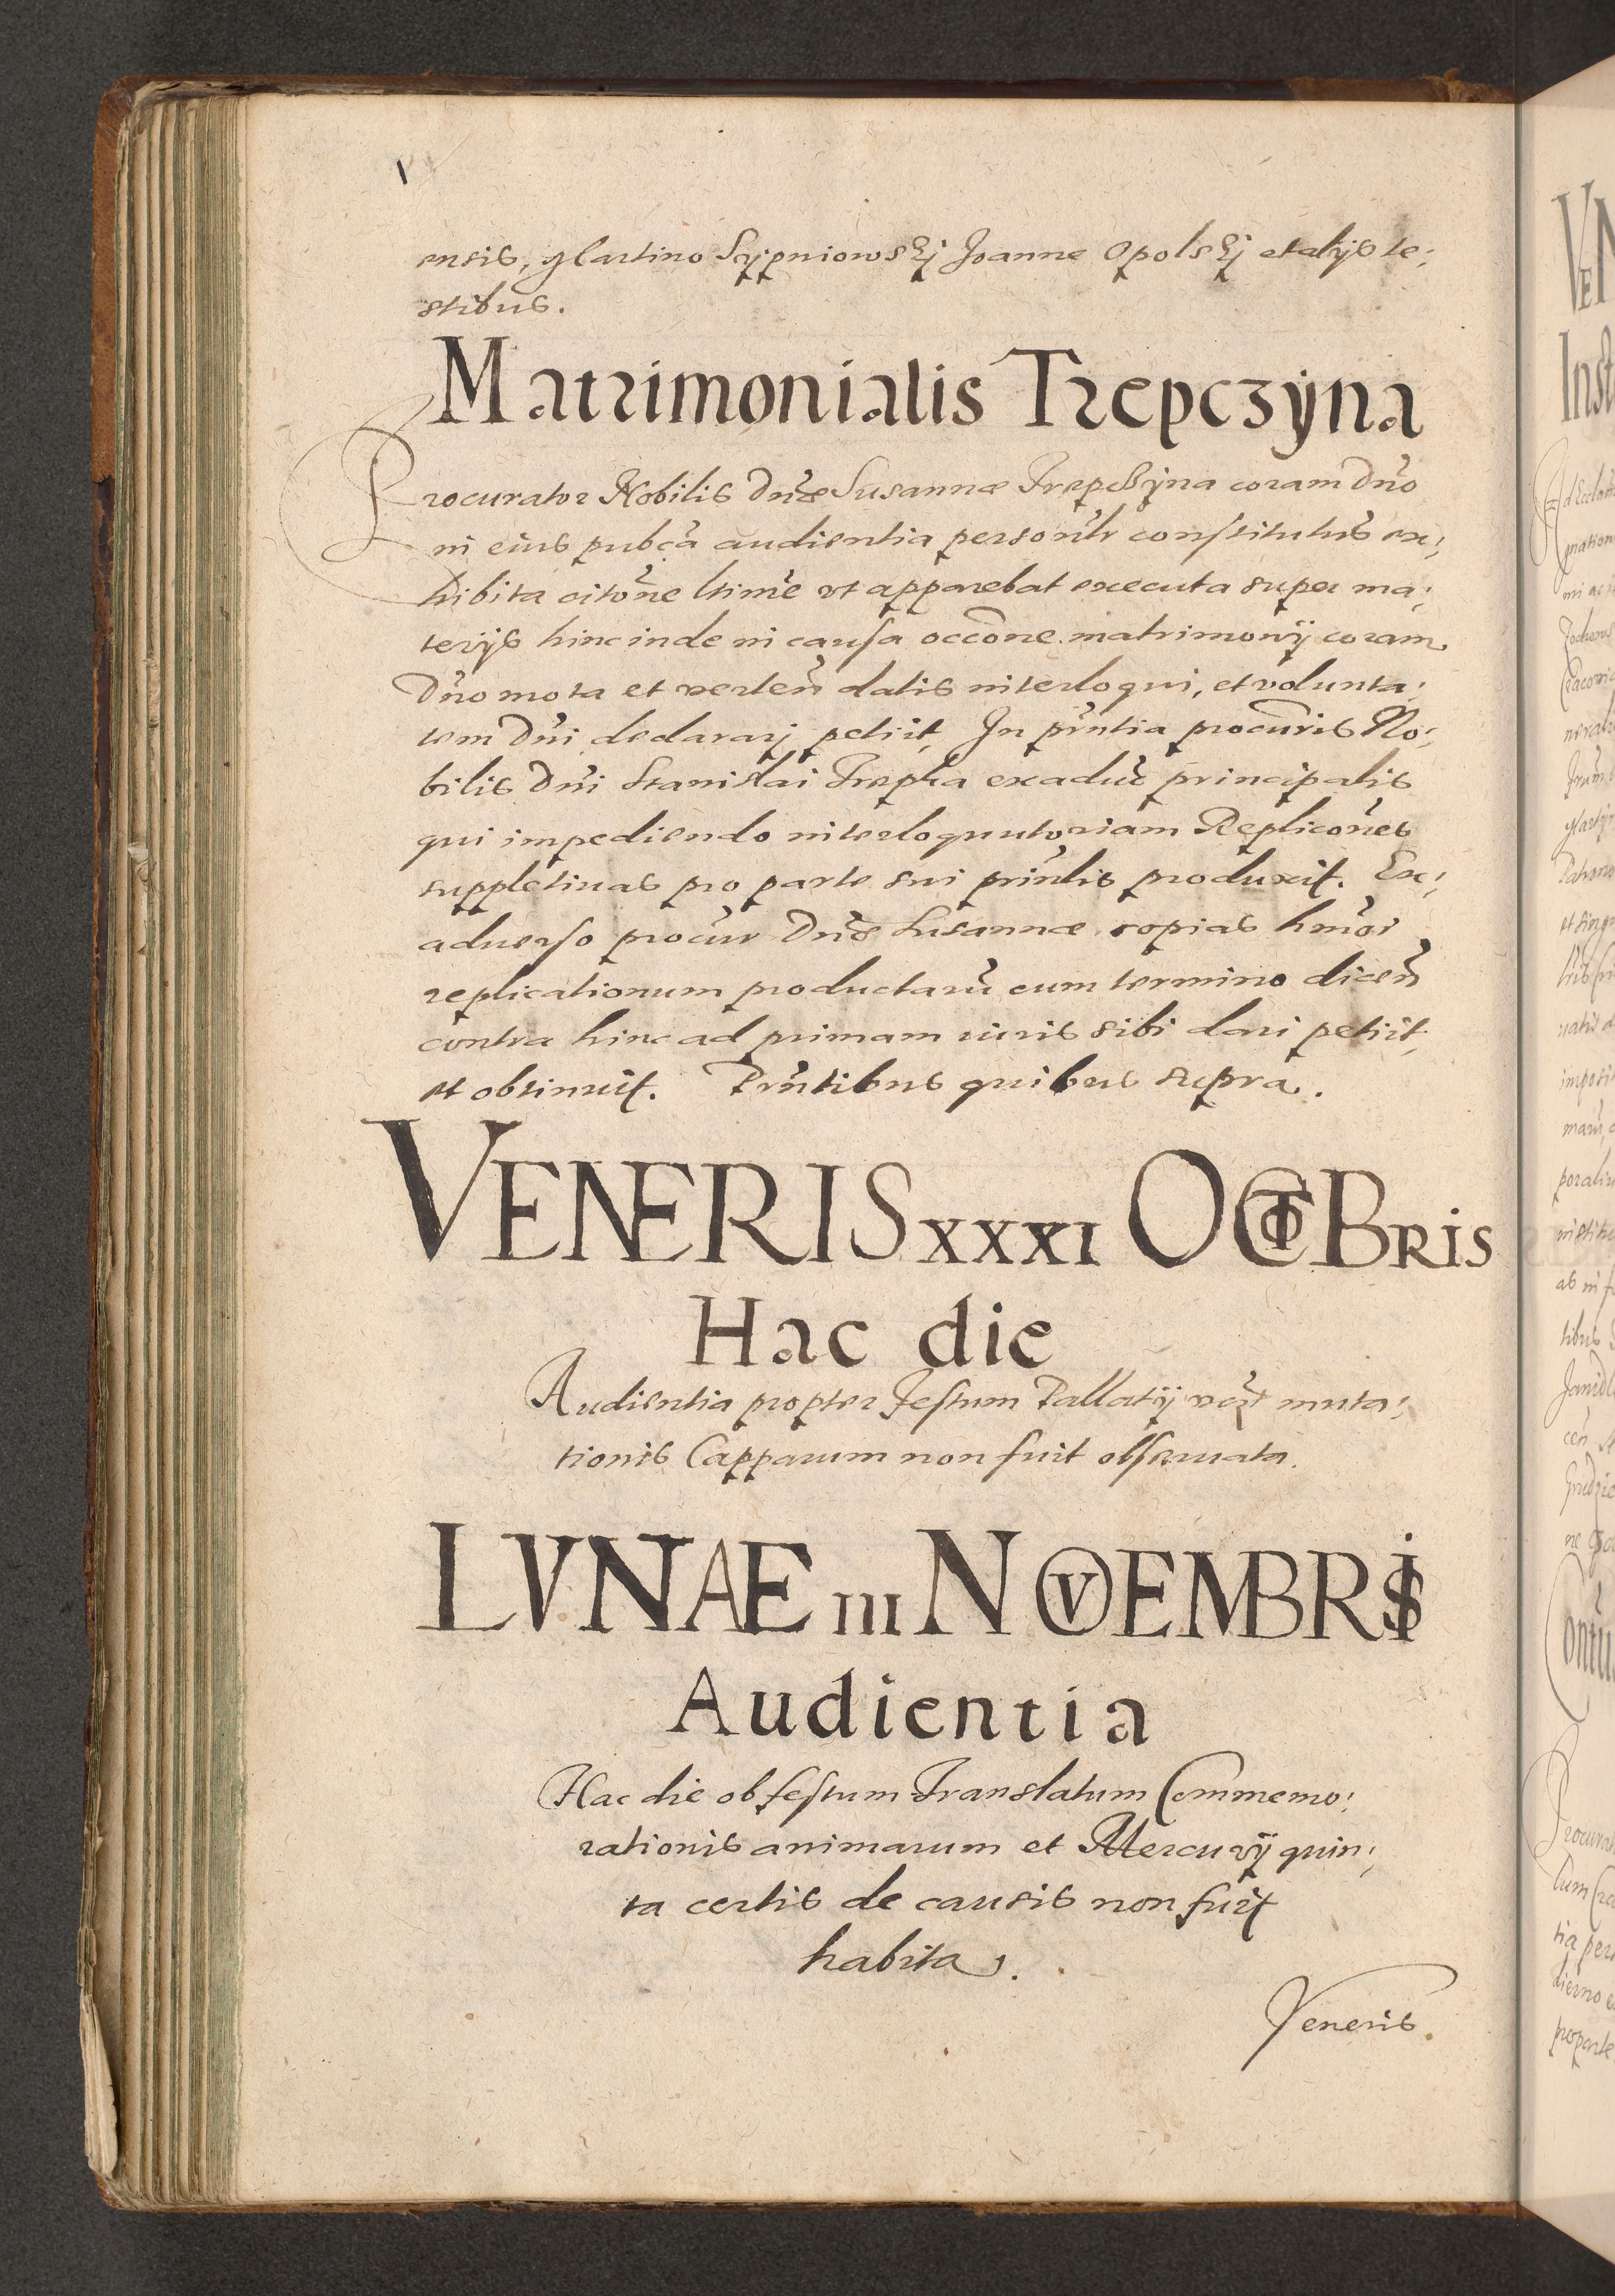 ensis, Martino Scypniowskj Joanne Opolskj et alijs te:
stibus.
Matrimonialis Trepczÿna
Procurator Nobilis Dn̄æ Susannæ Trepczÿna coram Dn̄o
in eius pubc̄a audientia personl̄r constitutus ex:
hibita citōne ltīme vt apparebat executa super ma:
terijs hinc inde in causa occōne matrimonij coram
Dn̄o mota et verteñ datis interloqui, et volunta:
tem Dn̄i declararj petiit, In pn̄tia procuris No:
bilis Dn̄i Stanislai Trepka ex aduēr principalis
qui impediendo interloquutoriam Replicōnes
suppletiuas pro parte sui prin̄lis produxit. Ex:
aduerso procūr Dn̄æ Susannæ copias hmōi
replicationum productarū cum termino diceñ
contra hinc ad primam iuris sibi dari petiit
et obtinuit. Prn̄tibus quibus supra.
VENERIS XXXI OCTOBRIS
Hac die
Audientia propter Festum Pallatij vēz muta:
tionis Capparum non fuit obseruata.
LVNAE III NOVEMBRIS
Audientia
Hac die ob festum Translatum Commemo:
rationis animarum et Mercurij quin:
ta certis de causis non fuit
habita.
Veneris.